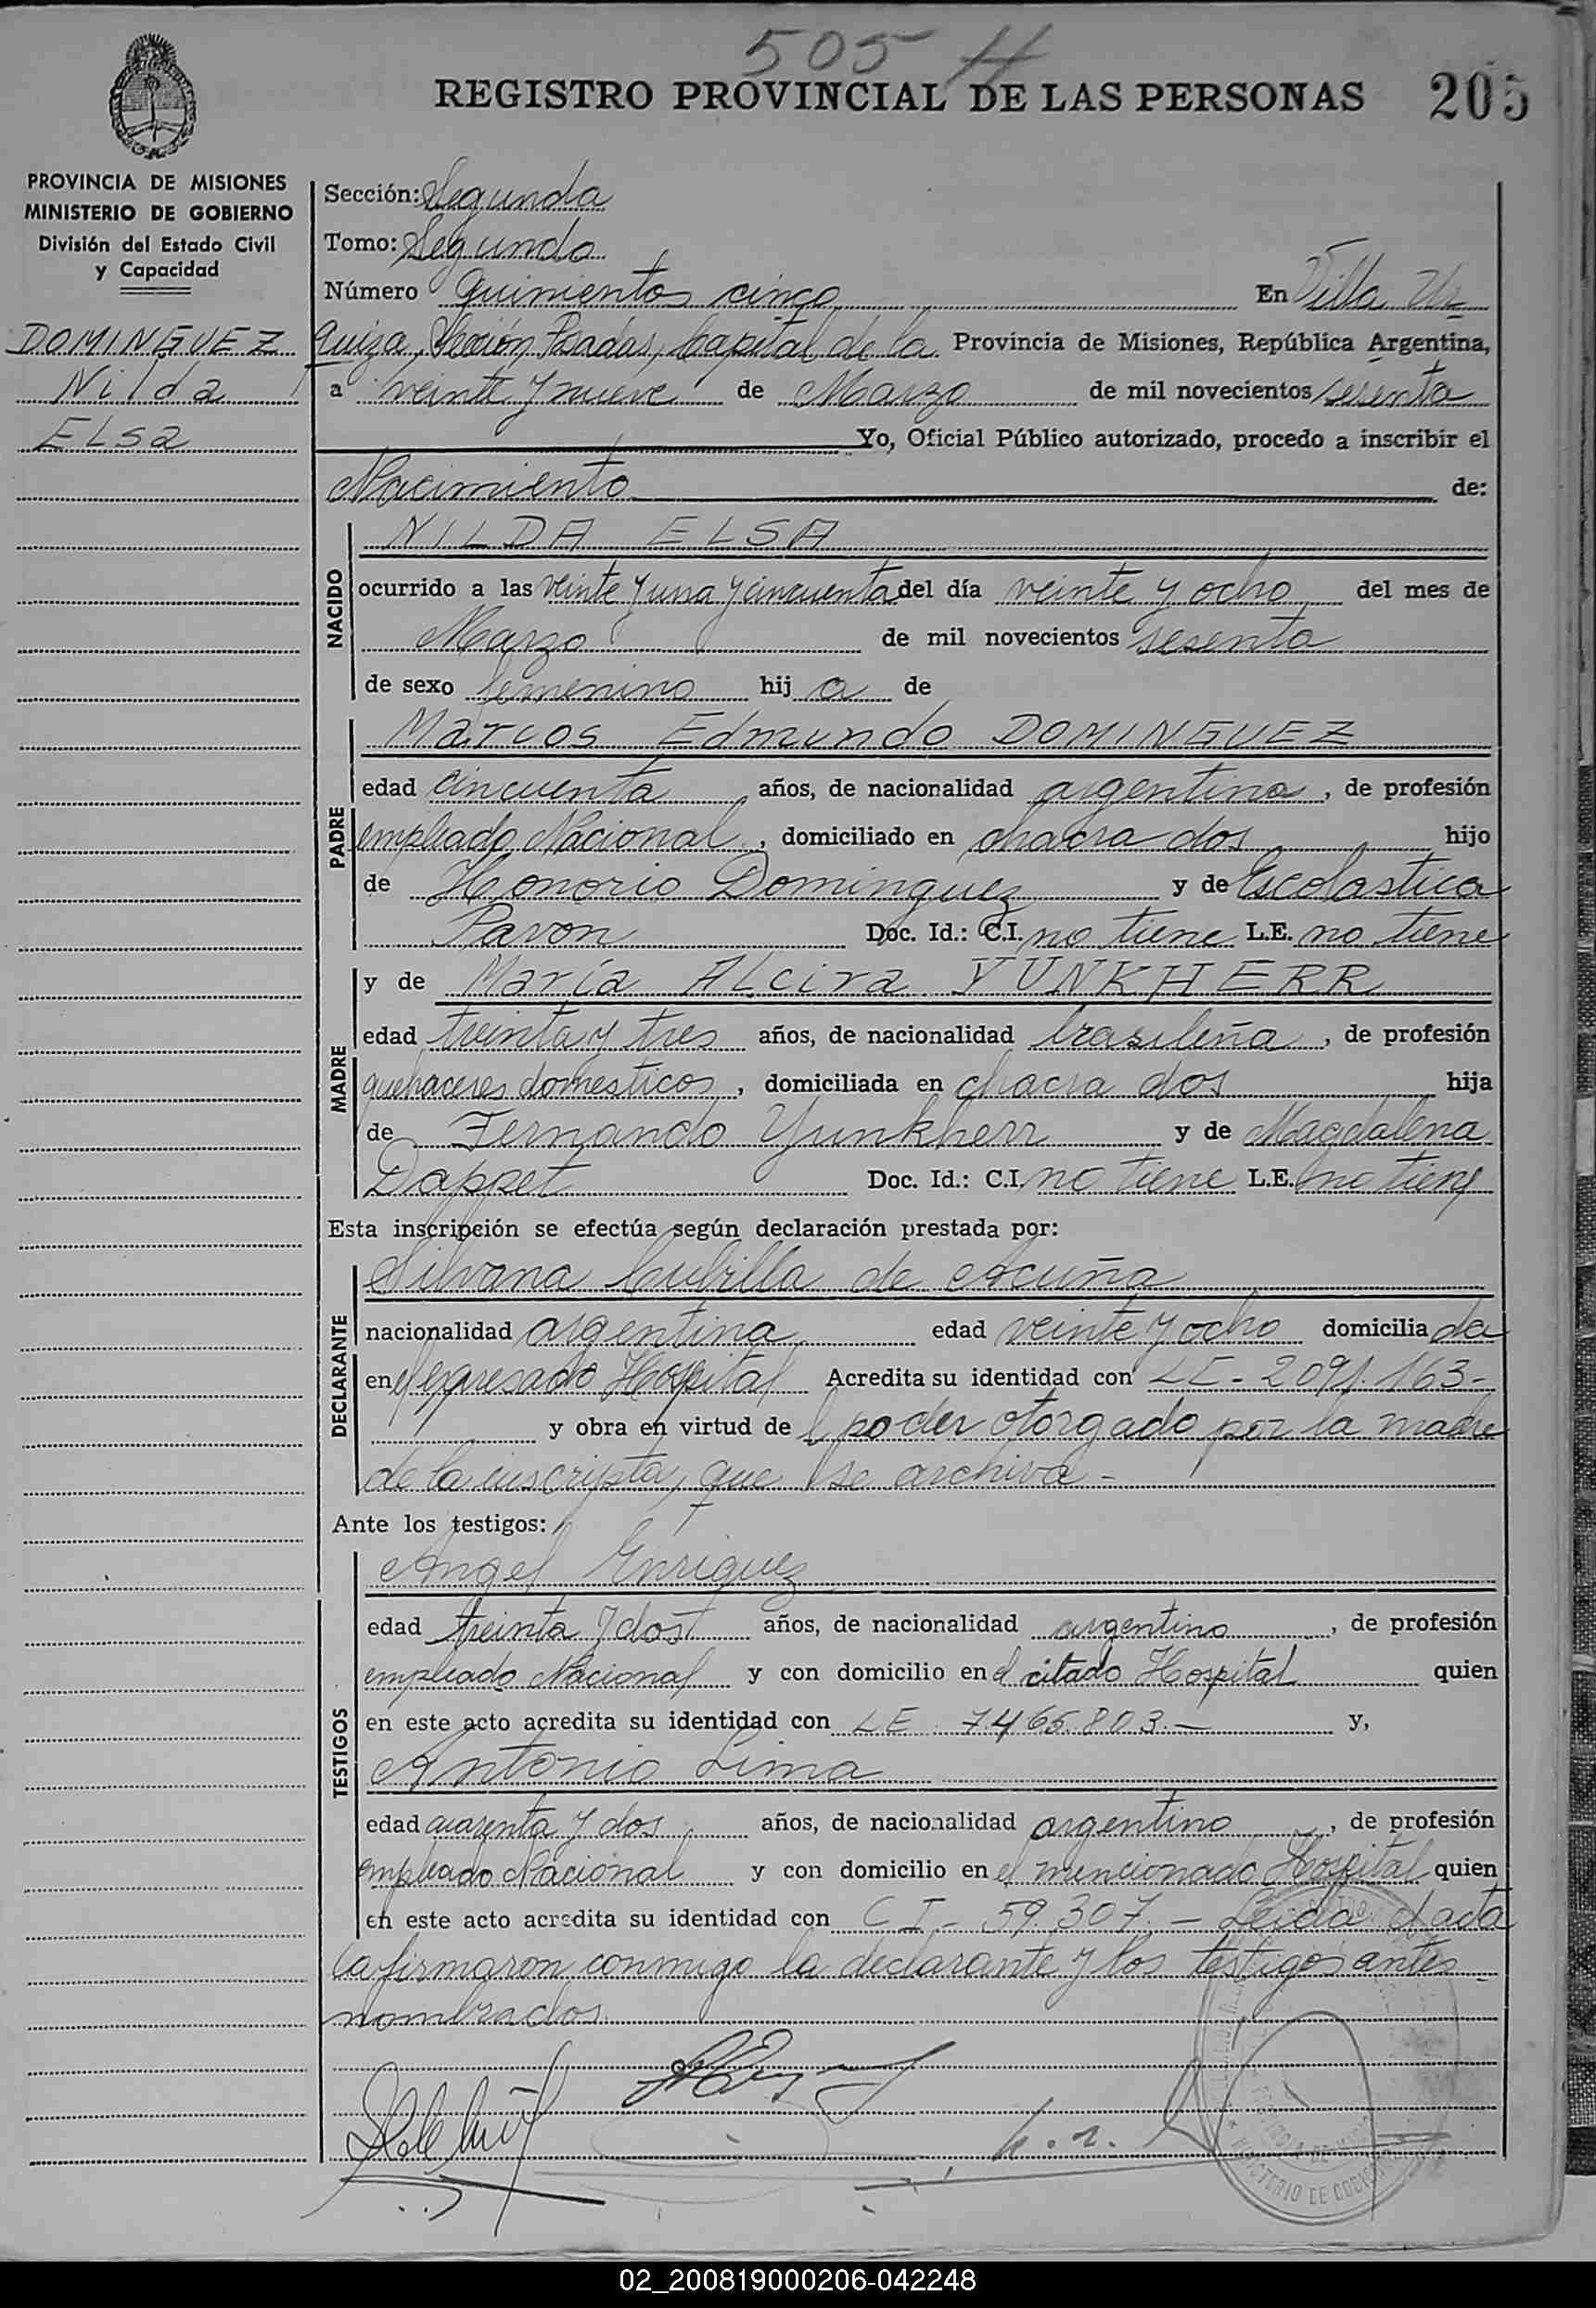 505 H
REGISTRO PROVINCIAL DE LAS PERSONAS 205
PROVINCIA DE MISIONES
MINISTERIO DE GOBIERNO
División del Estado Civil
y Capacidad
DOMINGUEZ
Nilda
Elsa
Sección: Segunda
Tomo: Segundo
Número Quinientos cinco En Villa Ur
quiza, Sección Posadas, Capital de la Provincia de Misiones, República Argentina,
a veinte y nueve de Marzo de mil novecientos sesenta
Yo, Oficial Público autorizado, procedo a inscribir el
Nacimiento de:
NACIDO
NILDA ELSA
ocurrido a las veinte y una y cincuenta del día veinte y ocho del mes de
Marzo de mil novecientos sesenta
de sexo femenino hij a de
PADRE
Marcos Edmundo DOMINGUEZ
edad cincuenta años, de nacionalidad argentina, de profesión
empleado Nacional, domiciliado en chacra dos hijo
de Honorio Dominguez y de Escolastica
Pavon Doc. Id.: C.I. no tiene L.E. no tiene
MADRE
y de María Alcira YUNKHERR
edad treinta y tres años, de nacionalidad brasileña, de profesión
quehaceres domesticos, domiciliada en chacra dos hija
de Fernando Yunkherr y de Magdalena
Dappet Doc. Id.: C.I. no tiene L.E. no tiene
Esta inscripción se efectúa según declaración prestada por:
DECLARANTE
Silvana Cubilla de Acuña
nacionalidad argentina edad veinte y ocho domicilia da
en el expresado Hospital Acredita su identidad con LC - 2091.163-
y obra en virtud de l poder otorgado por la madre
de la inscripta, que se archiva -
Ante los testigos:
TESTIGOS
Angel Enriquez
edad treinta y dos años, de nacionalidad argentino, de profesión
empleado Nacional y con domicilio en el citado Hospital quien
en este acto acredita su identidad con LE 7465.803.- y,
Antonio Lima
edad cuarenta y dos años, de nacionalidad argentino, de profesión
empleado Nacional y con domicilio en el mencionado Hospital quien
en este acto acredita su identidad con CI - 59.307. - Leída el acta
la firmaron conmigo la declarante y los testigos antes
nombrados.
02_200819000206-042248